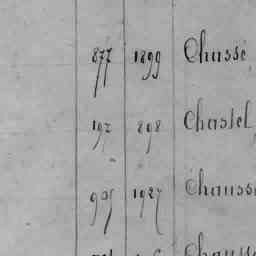 877 1899 Chassé
197 898 Chastel
905 1927 Chauss